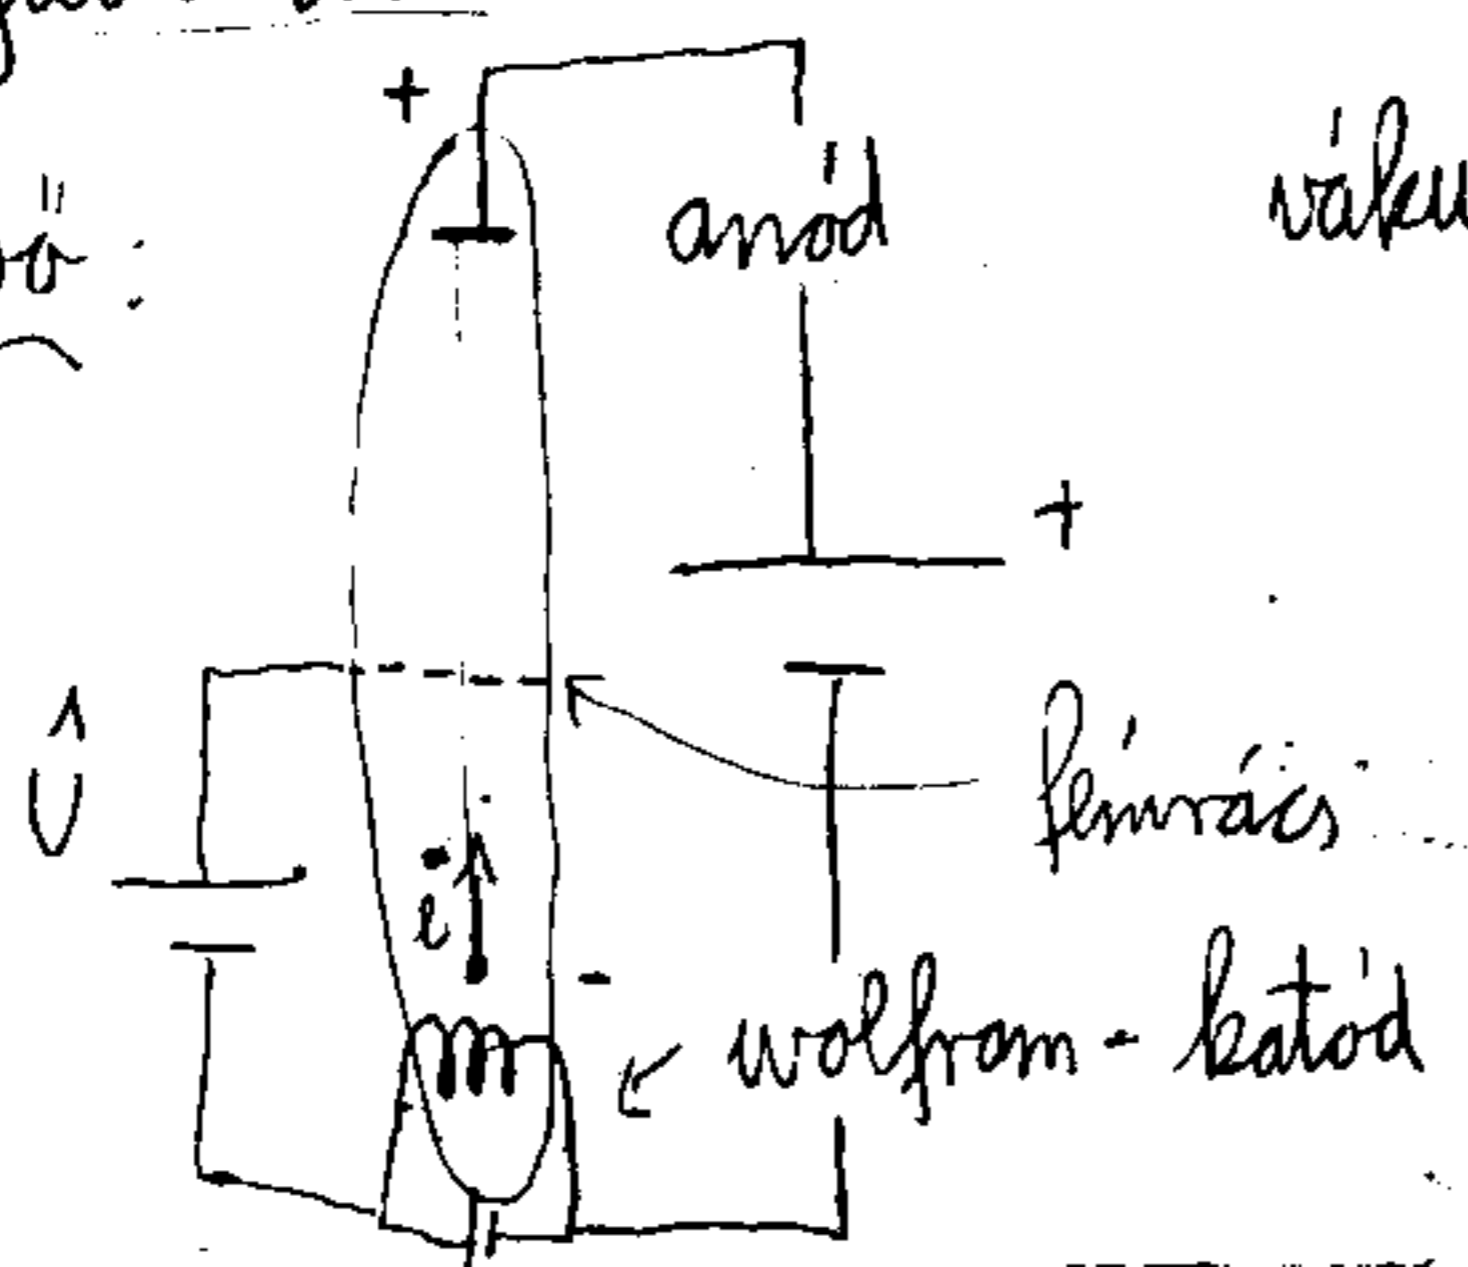 +
anód
+
U
fémrács
e
-
wolfram - katód